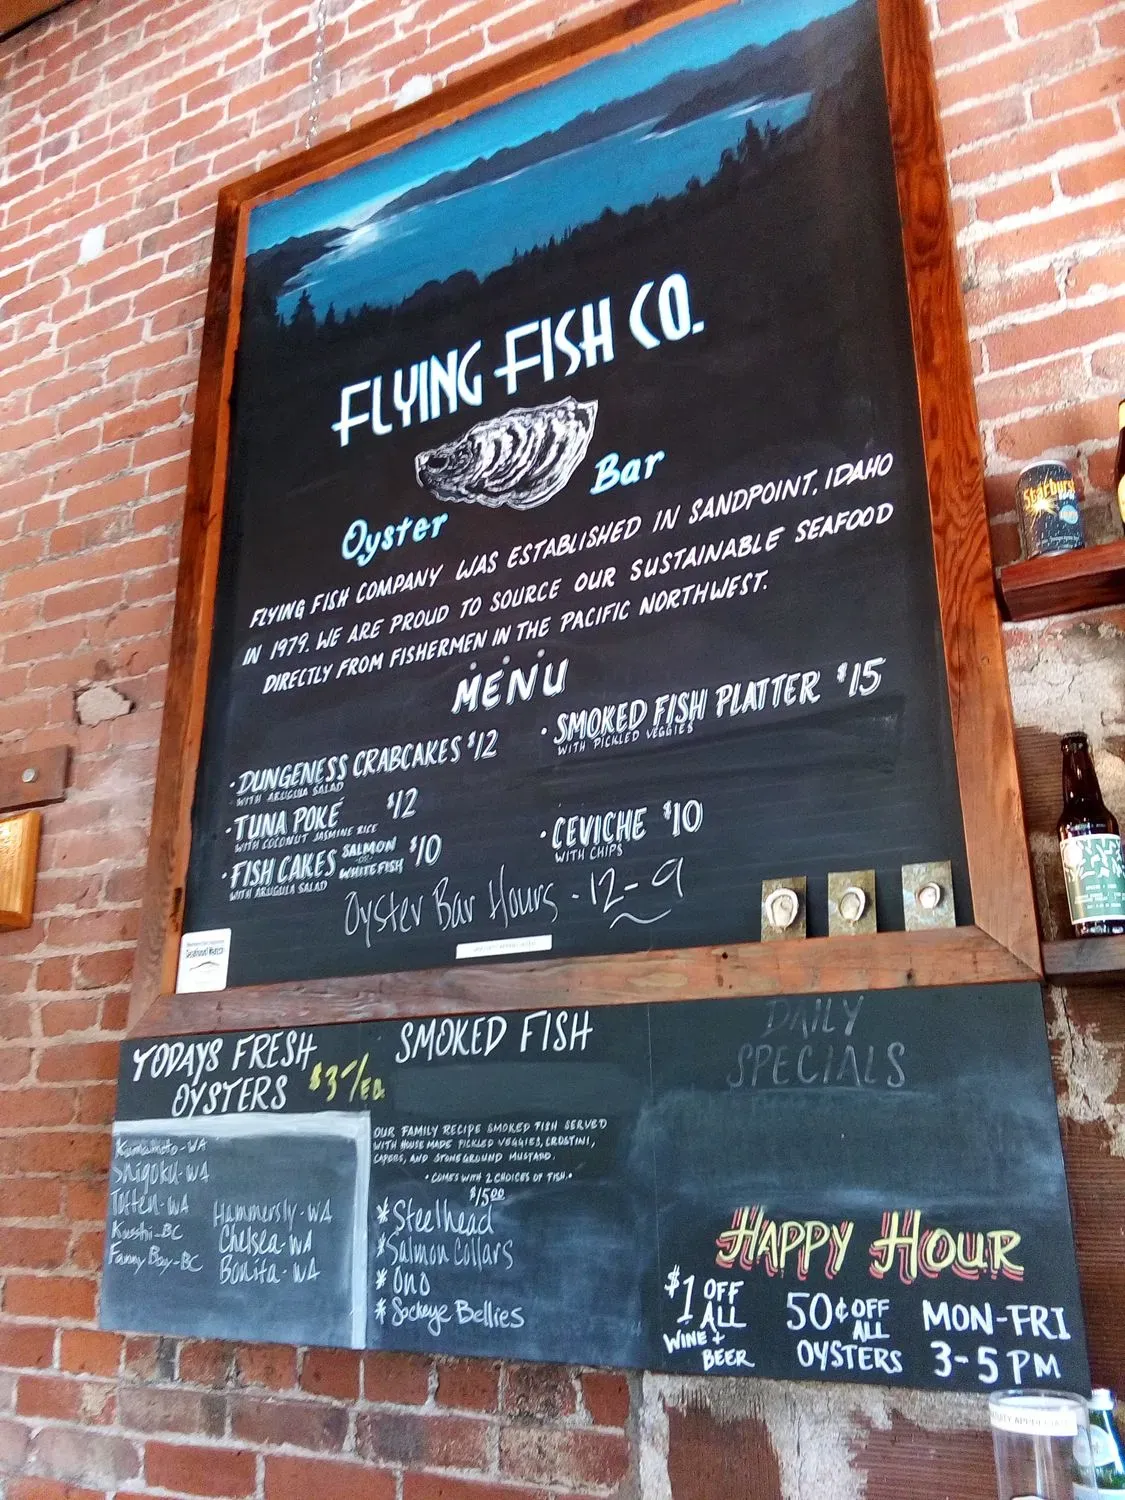 FLYING FISH CO.
Oyster Bar
FLYING FISH COMPANY WAS ESTABLISHED IN SANDPOINT, IDAHO
IN 1979. WE ARE PROUD TO SOURCE OUR SUSTAINABLE SEAFOOD
DIRECTLY FROM FISHERMEN IN THE PACIFIC NORTHWEST.
MENU
· DUNGENESS CRABCAKES $12
WITH ARUGULA SALAD
· TUNA POKÉ $12
WITH COCONUT JASMINE RICE
· FISH CAKES SALMON OR WHITEFISH $10
WITH ARUGULA SALAD
· SMOKED FISH PLATTER $15
WITH PICKLED VEGGIES
· CEVICHE $10
WITH CHIPS
Oyster Bar Hours - 12-9
Seafood Watch
TODAYS FRESH
OYSTERS $3-/EA
Kumamoto-WA
Shigoku-WA
Totten-WA
Kusshi-BC
Fanny Bay-BC
Hammersly-WA
Chelsea-WA
Bonita-WA
SMOKED FISH
OUR FAMILY RECIPE SMOKED FISH SERVED
WITH HOUSE MADE PICKLED VEGGIES, CROSTINI,
CAPERS, AND STONEGROUND MUSTARD.
· COMES WITH 2 CHOICES OF FISH.·
$15.00
* Steelhead
* Salmon Collars
* Ono
* Sockeye Bellies
DAILY
SPECIALS
HAPPY HOUR
$1 OFF
ALL
WINE +
BEER
50¢ OFF
ALL
OYSTERS
MON-FRI
3-5 PM
Starburst